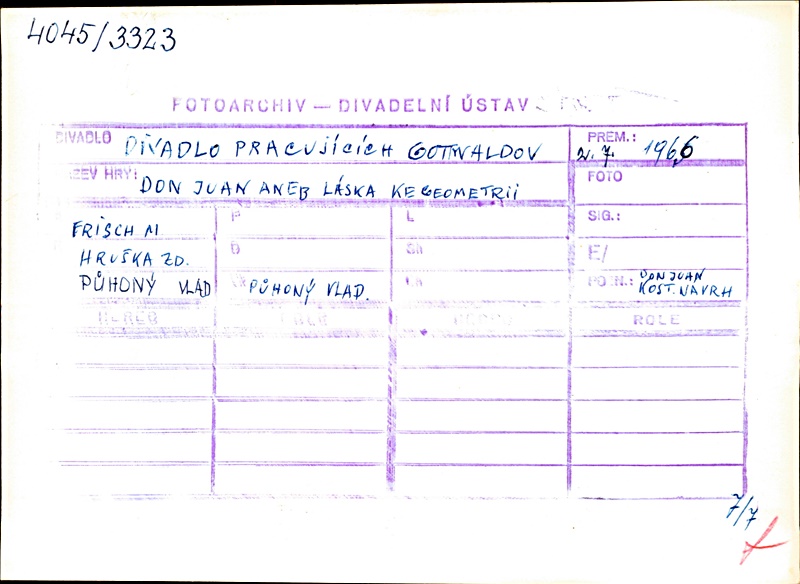 4045/3323
FOTOARCHIV — DIVADELNÍ ÚSTAV
DIVADLO DIVADLO PRACUJÍCÍCH GOTTWALDOV
PREM.: 2. 7. 1966
NÁZEV HRY: DON JUAN ANEB LÁSKA KE GEOMETRII
FOTO
FRISCH M
P
L
SIG.:
HRUŠKA ZD.
D
Sh
E/
PŮHONÝ VLAD
PŮHONÝ VLAD.
POZN.: DON JUAN
KOST. NÁVRH
HEREC
ROLE
7/7